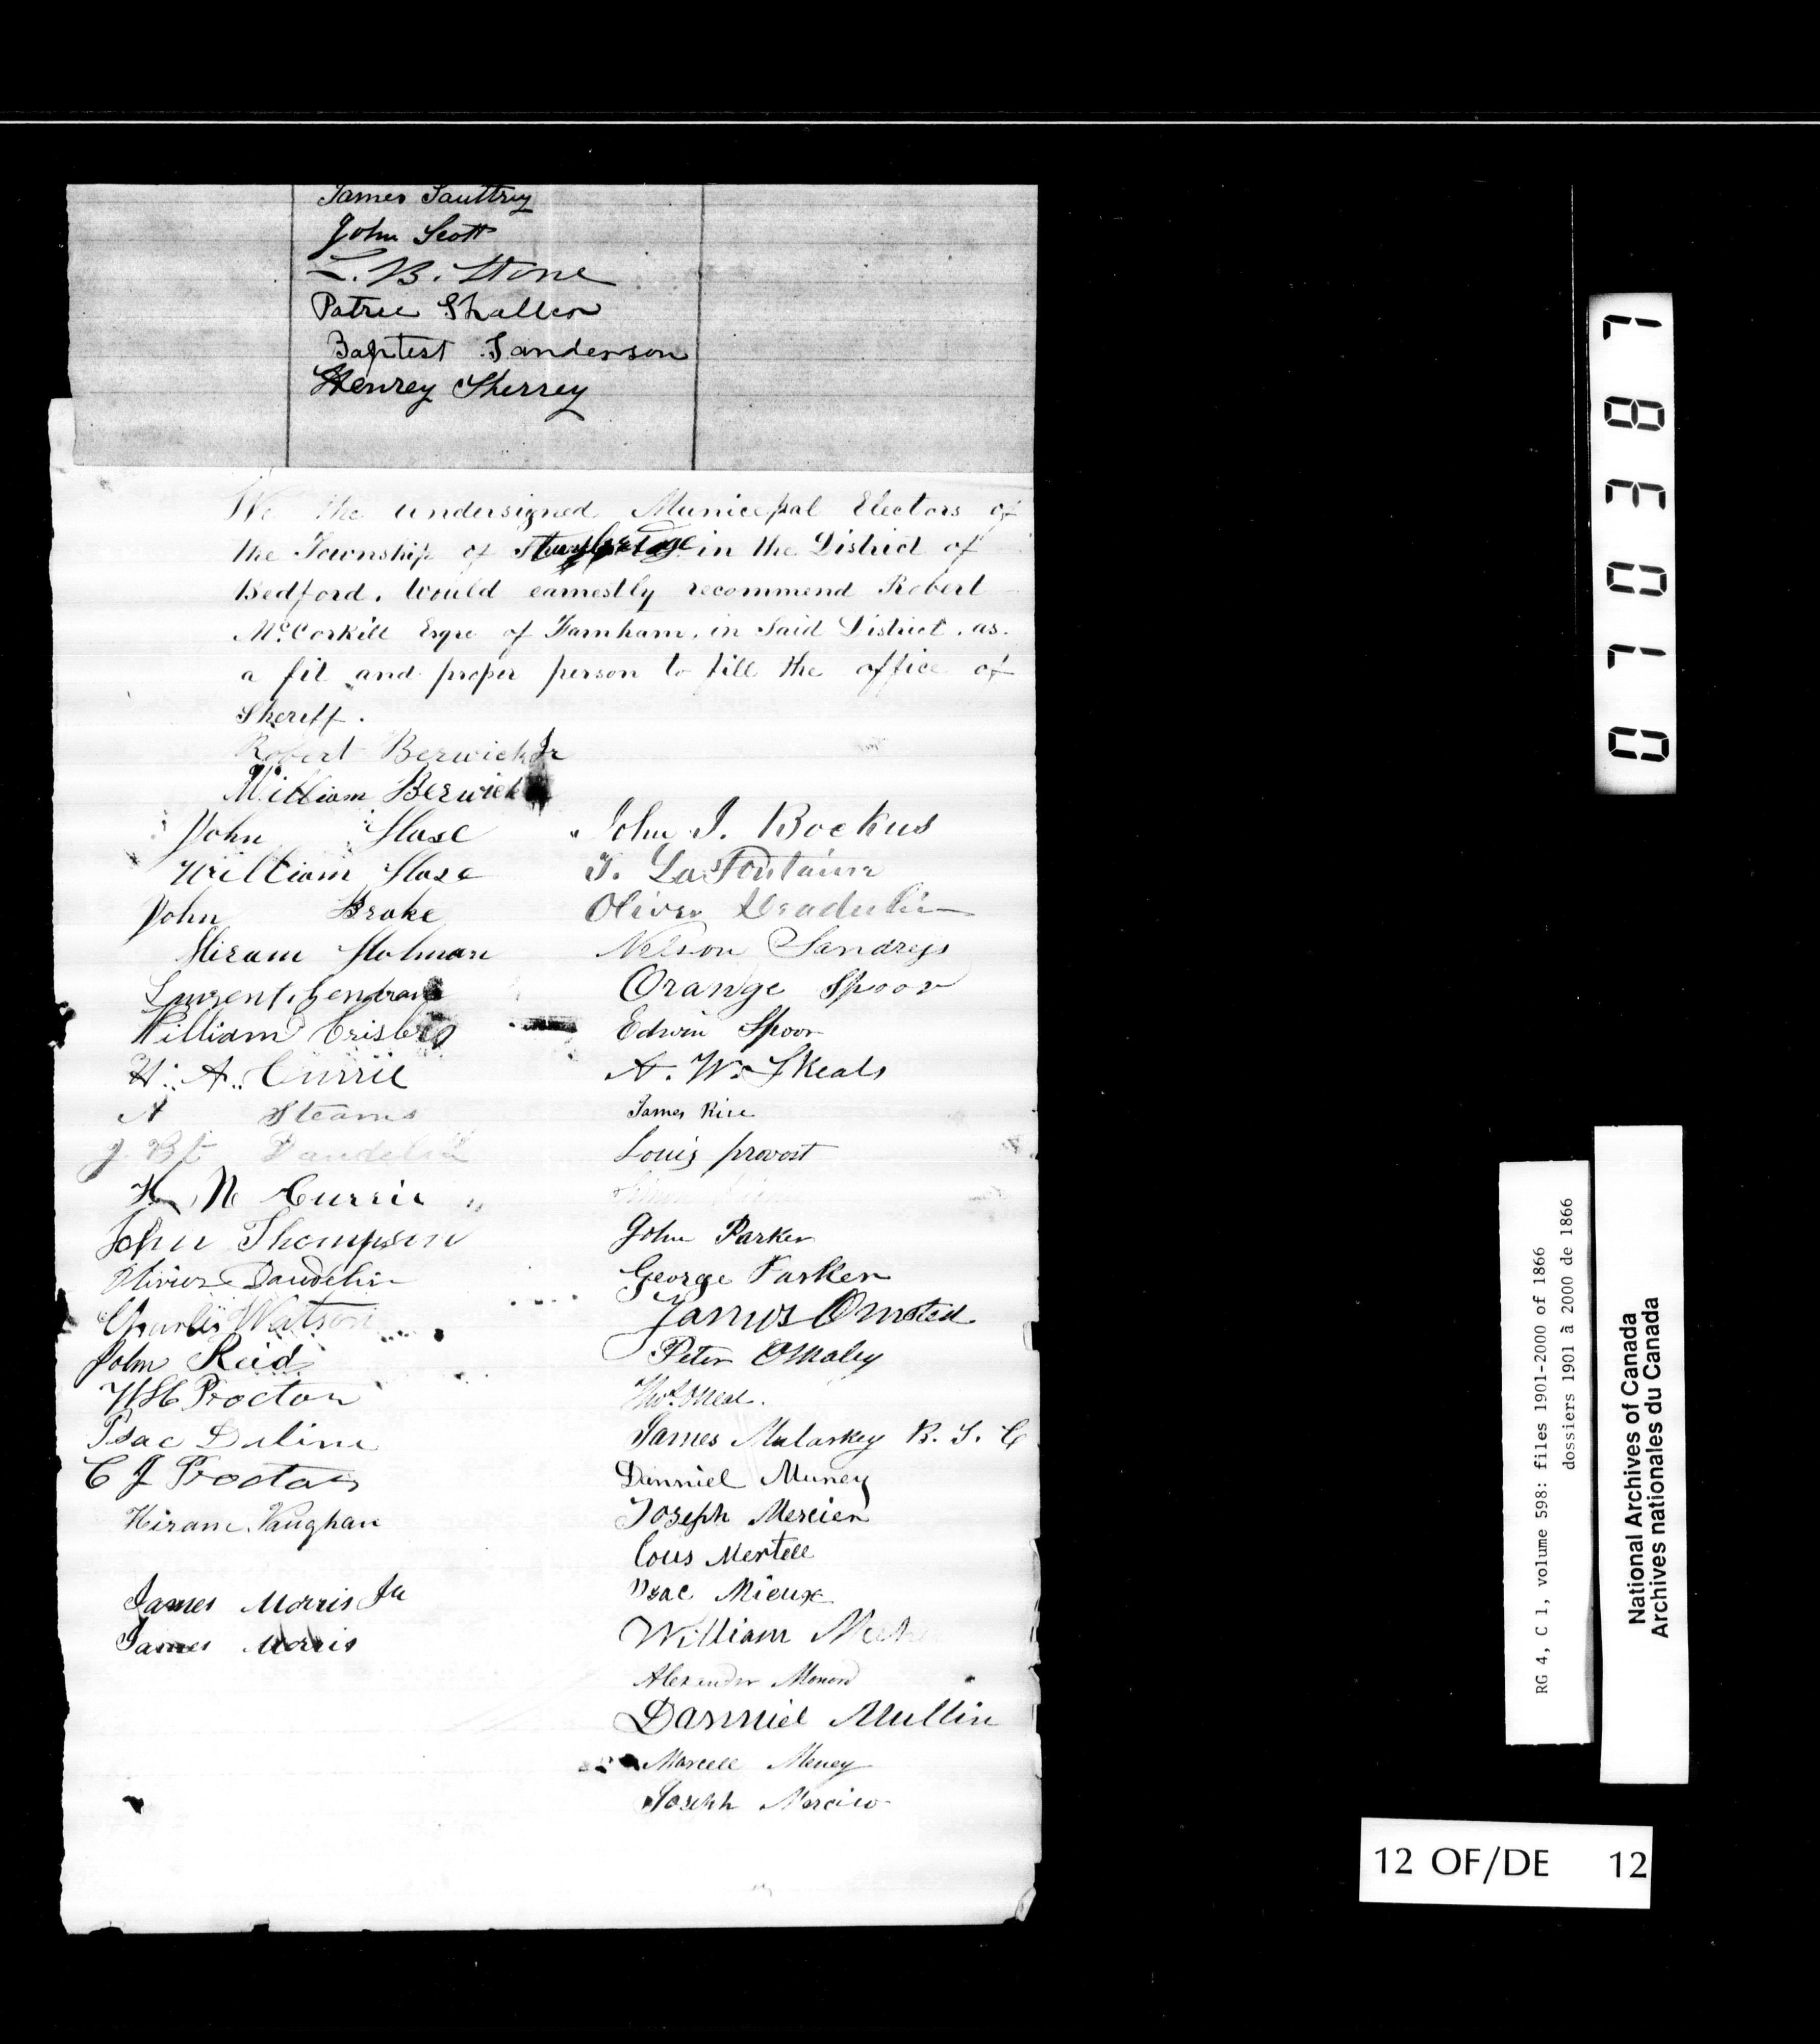 James
John Scott
L. B. Stone
Patric Shallow
Baptest Sanderson
Henrey Sherrey
We the undersigned Municepal Electors of
the Township of in the District of
Bedford. Would earnestly recommend Robert
McCorkill Esqre of Farnham, in Said District. as.
a fit and proper person to fill the office of
Sheriff.
Robert Berwick Jr
William Berwick
John Hase
William Hase
John Brake
Hiram Holman
William
H. A. Currie
A Stearns
J Bt Dandelin
H N Currie
John Thompson
Olivier Dandelin
Charles Watson
John Reid
W H Proctor
Isac Deline
C J Proctor
Hiram Vaughan
James Morris Jr
James Morris
John I. Bockus
T. LaFontaine
Oliver
Nelson
Orange Spoor
Edwin Spoor
A. W. Skeals
James Rice
Louis provost
John Parker
George Parker
James Omsted
Peter OMaley
Thos Neal.
James Mularkey B. S. C
Danniel Muney
Joseph Mercier
Lous Mertell
Isac Mieux
William
Alexander
Danniel Mullin
Marcell Meney
Joseph
0710387
RG 4, C 1, volume 598: files 1901-2000 of 1866
dossiers 1901 à 2000 de 1866
National Archives of Canada
Archives nationales du Canada
12 OF/DE 12